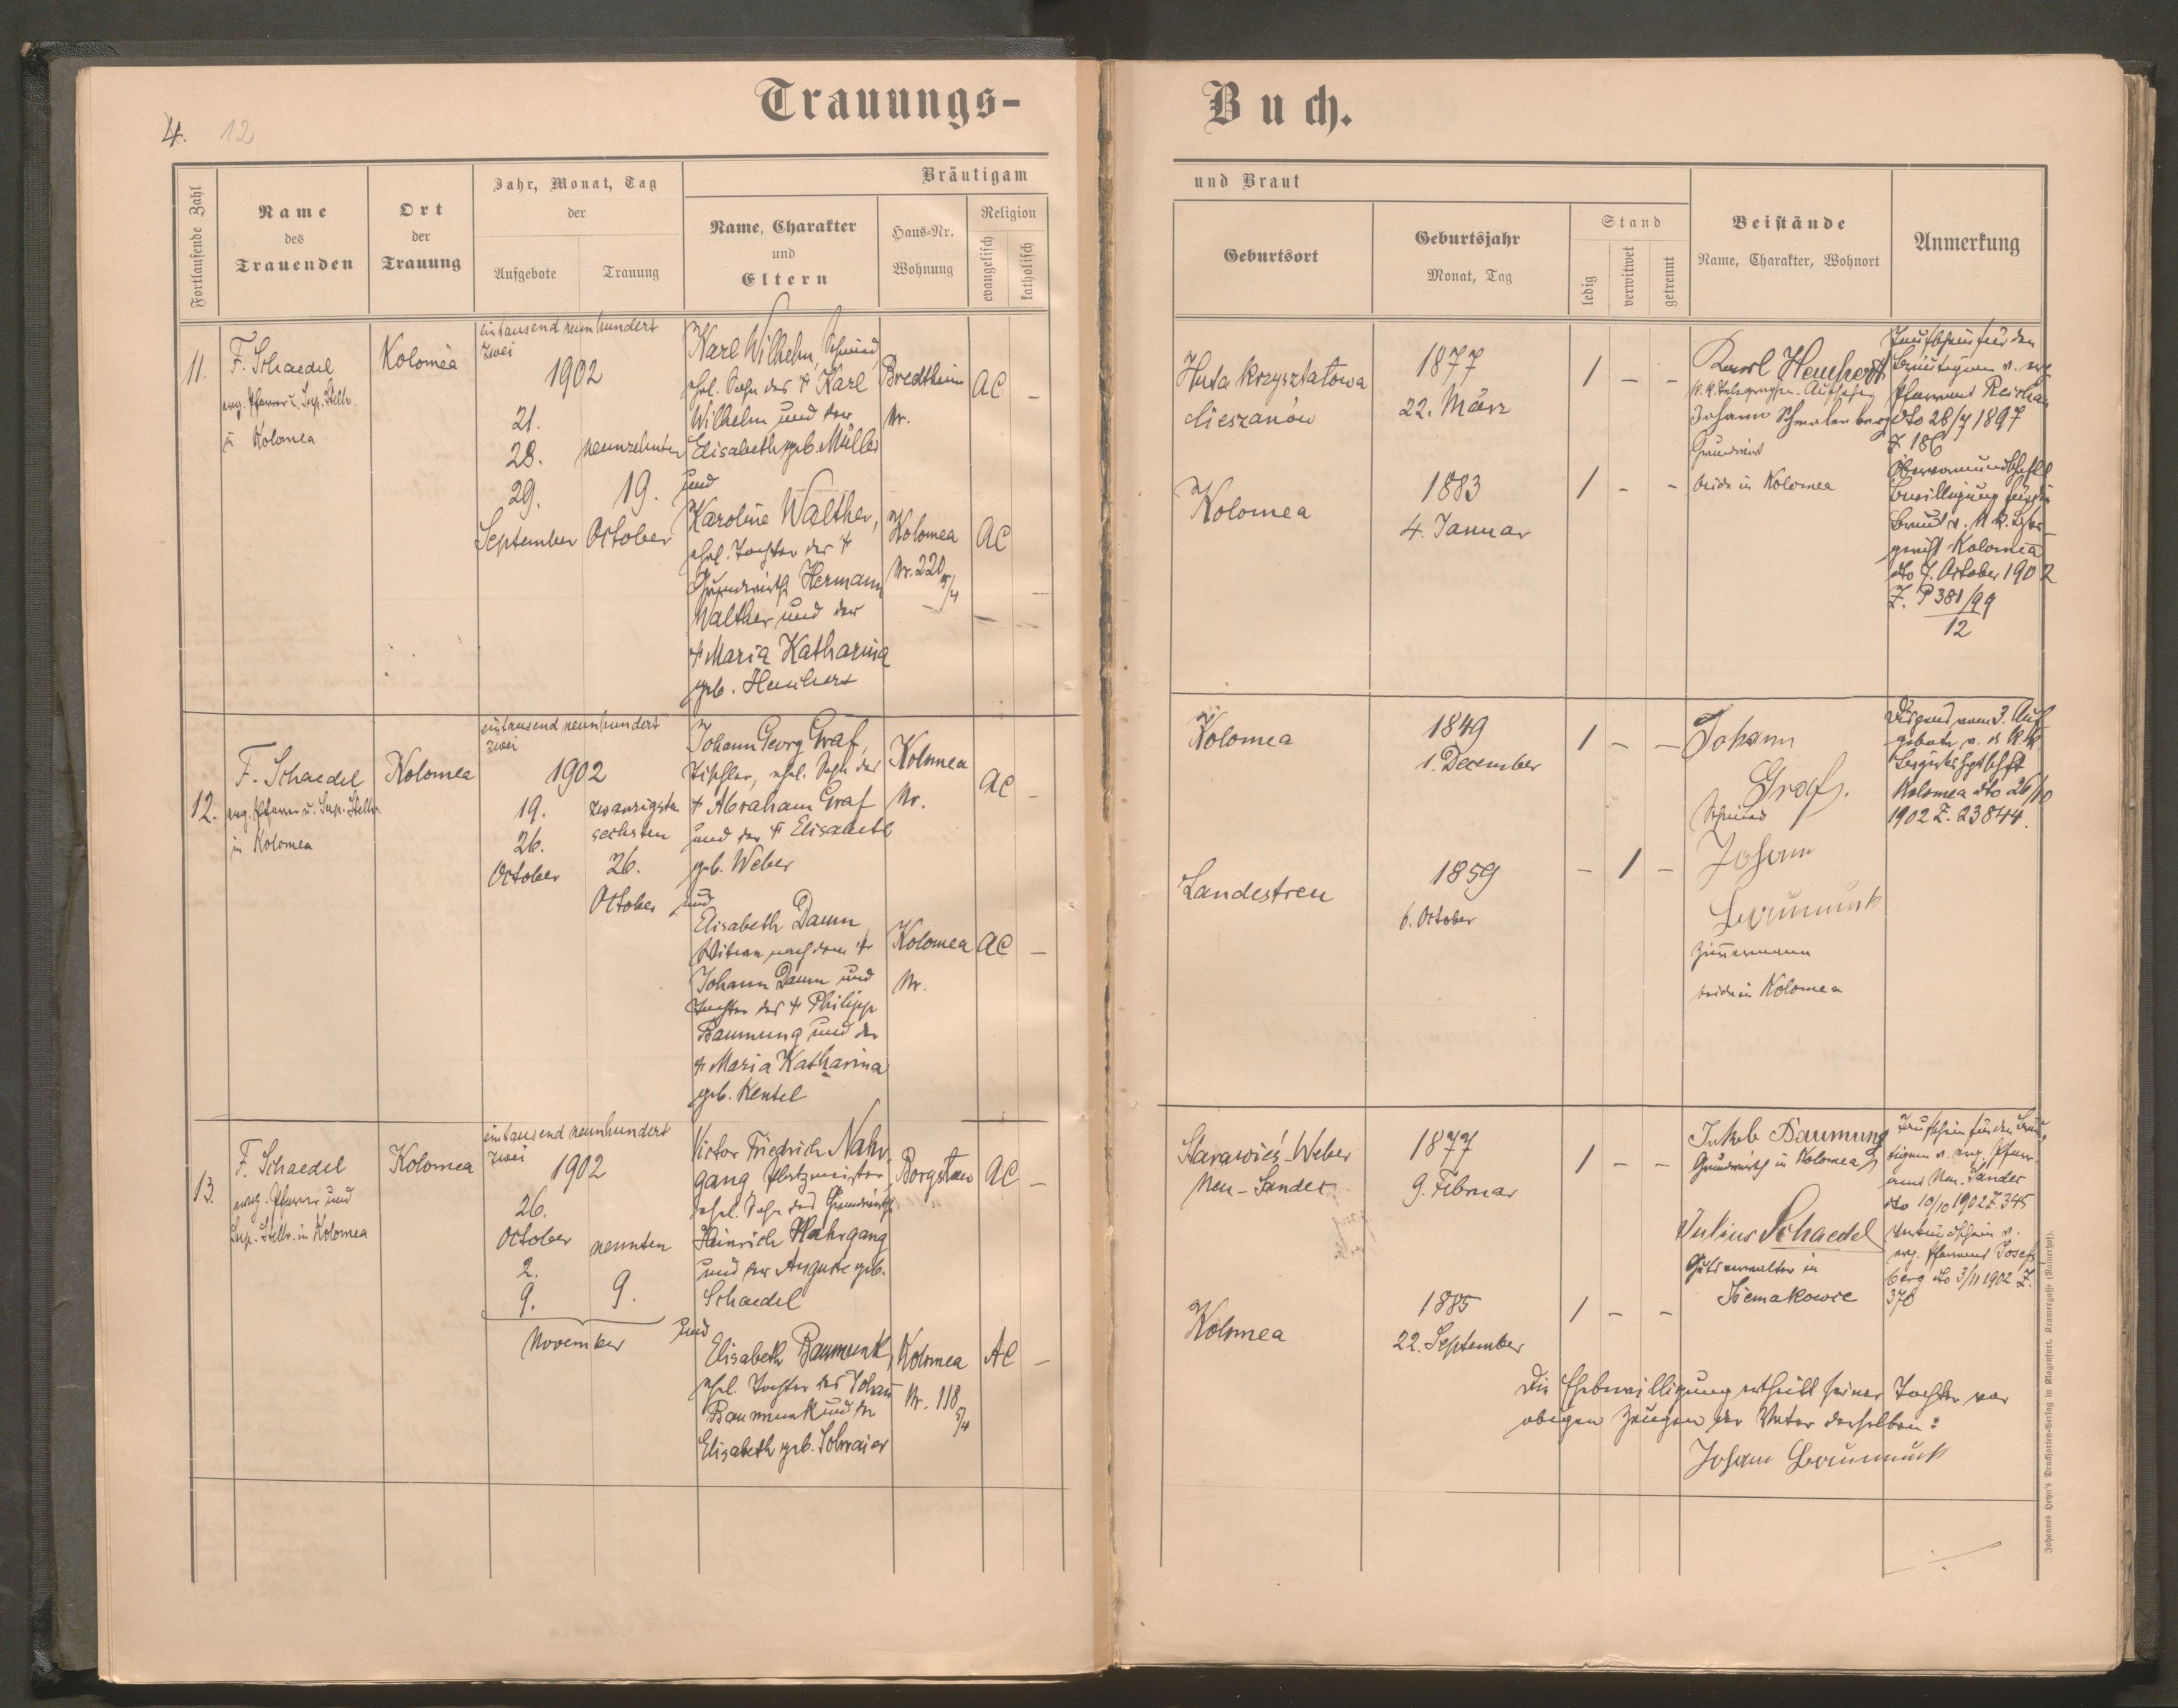 Trauungs-
Buch.
4.
12
Fortlaufende Zahl
Name
des
Trauenden
Ort
der
Trauung
Jahr, Monat, Tag
der
Aufgebote
Trauung
Bräutigam
Name, Charakter
und
Eltern
Haus-Nr.
Wohnung
Religion
evangelisch
katholisch
und Braut
Geburtsort
Geburtsjahr
Monat, Tag
Stand
ledig
verwitwet
getrennt
Beistände
Name, Charakter, Wohnort
Anmerkung
11.
F. Schaedel
evg. Pfarrer u. Sup. Stellv.
Kolomea
Kolomea
eintausend neunhundert
zwei
1902
21.
28.
29.
September
neunzehnten
19.
October
Karl Wilhelm, Schmied,
ehel. Sohn des † Karl
Wilhelm und der
Elisabeth geb. Müller
und
Karoline Walther,
ehel. Tochter des †
Grundwirths Hermann
Walther und der
† Maria Katharina
geb. Heuchert
Bredtheim
Nr.
AC
–
Kolomea
Nr. 220 5/4
AC
–
Huta Krzysztalowa
Cieszanów
1877
22. März
1 – –
Kolomea
1883
4. Januar
1 – –
Karl Heuchert
K.K. Telegraphen-Aufseher
Johann Schmalenberg
Grundwirt
beide in Kolomea
Taufschein für den
Bräutigam v. evg.
Pfarramt Reichau
dto 28/7 1897
Z 186
Obervormundschaftl.
Bewilligung für die
Braut v. K.k. Bezirks-
gericht Kolomea
dto 7. October 1902
Z. P 381/99
12
12.
F. Schaedel
evg. Pfarrer u. Sup. Stellv.
in Kolomea
Kolomea
eintausend neunhundert
zwei
1902
19.
26.
October
zwanzigsten
sechsten
26.
October
Johann Georg Graf,
Tischler, ehel. Sohn des
† Abraham Graf
und der † Elisabeth
geb. Weber
und
Elisabeth Daum
Witwe nach dem †
Johann Daum und
Tochter des † Philipp
Baumung und der
† Maria Katharina
geb. Kentel
Kolomea
Nr.
AC
–
Kolomea
Nr.
AC
–
Kolomea
1849
1. December
1 – –
Landestreu
1859
6. October
– 1 –
Johann
Graf.
Schmied
Johann
Baumunk
Zimmermann
beide in Kolomea
Dispens vom 3. Auf
gebote v. d. K.k.
Bezirkshptschft
Kolomea dto 26/10
1902 Z. 23844.
13.
F. Schaedel
evg. Pfarrer und
Sup. Stellv. in Kolomea
Kolomea
eintausend neunhundert
zwei
1902
26.
October
2.
9.
neunten
9.
November
Victor Friedrich Nahr-
gang Platzmeister,
ehel. Sohn des Grundwirths
Heinrich Nahrgang
und der Auguste geb.
Schaedel
und
Elisabeth Baumunk,
ehel. Tochter des Johann
Baumunk und der
Elisabeth geb. Schmaier
Borysław
AC
–
Kolomea
Nr. 118 5/4
AC
–
Starawieś-Weber
Neu-Sandez
1877
9. Februar
1 – –
Kolomea
1885
22. September
1 – –
Jakob Baumung
Grundwirth in Kolomea
Julius Schaedel
Gutsverwalter in
Siemakowce
Taufschein für den Bräu-
tigam v. evg. Pfarr-
amt Neu-Sandez
dto 10/10 1902 Z. 345
Verkündschein v.
evg. Pfarramt Josefs
berg dto 3/11 1902 Z.
370
Die Ehebewilligung ertheilt seiner Tochter vor
obigen Zeugen der Vater derselben:
Johann Baumunk
Johannes Heyn's Drucksorten-Verlag in Klagenfurt, Kramergasse (Rainerhof).